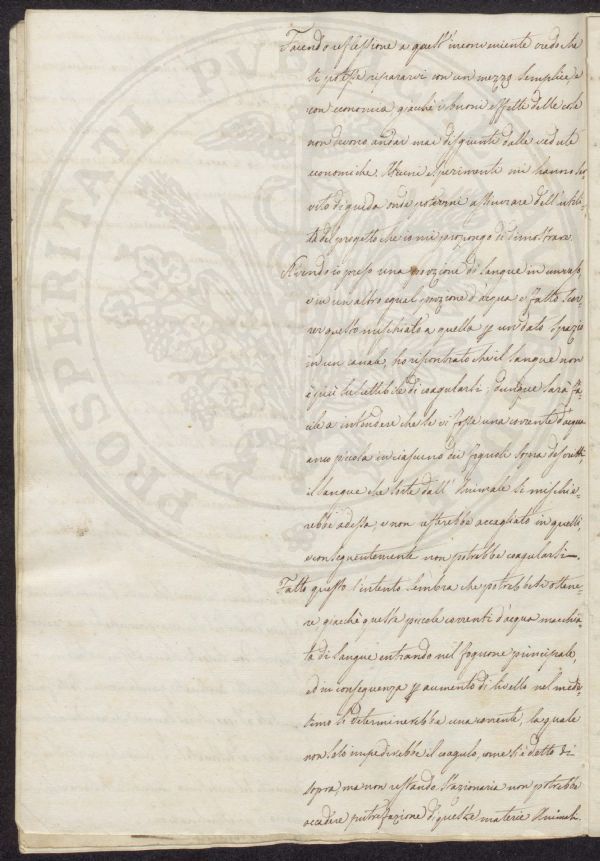 Facendo reflessione a quest'inconveniente credo che
si potesse ripararvi con un mezzo semplice, e
con economia, giachè i buoni effetti delle cose
non devono andar mai disgiunti dalle vedute
economiche. Alcuni esperimenti mi hanno ser=
vito di guida onde potermi assicurare dell'utili=
tà del progetto che io mi propongo di dimostrare.
Avendo io preso una porzione di sangue in un vaso,
e in un altro egual porzione d'acqua e fatto scor=
rer questo mischiato a quella p un dato spazio
in un canale, ho riscontrato che il sangue non
è più suscettibile di coagularsi; dunque sarà fa=
cile a intendere che se vi fosse una corrente d'acqua
anco piccola in ciascuno dei fognoli sopra descritti,
il sangue che sorte dall'Animale si mischie=
rebbe ad essa, e non resterebbe accagliato in quelli,
e conseguentemente non potrebbe coagularsi.
Fatto questo l'intento sembra che potrebbesi ottene=
re giacchè quelle piccole correnti d'acqua macchia=
ta di sangue entrando nel fognone principale,
ed in conseguenza p aumento di livello nel mede=
simo si determinerebbe una corrente, la quale
non solo impedirebbe il coagulo, come si è detto di
sopra, ma non restando stazionaria non potrebbe
accadere putrefazione di queste materie Animali.
PROSPERITATI PUBLICAE